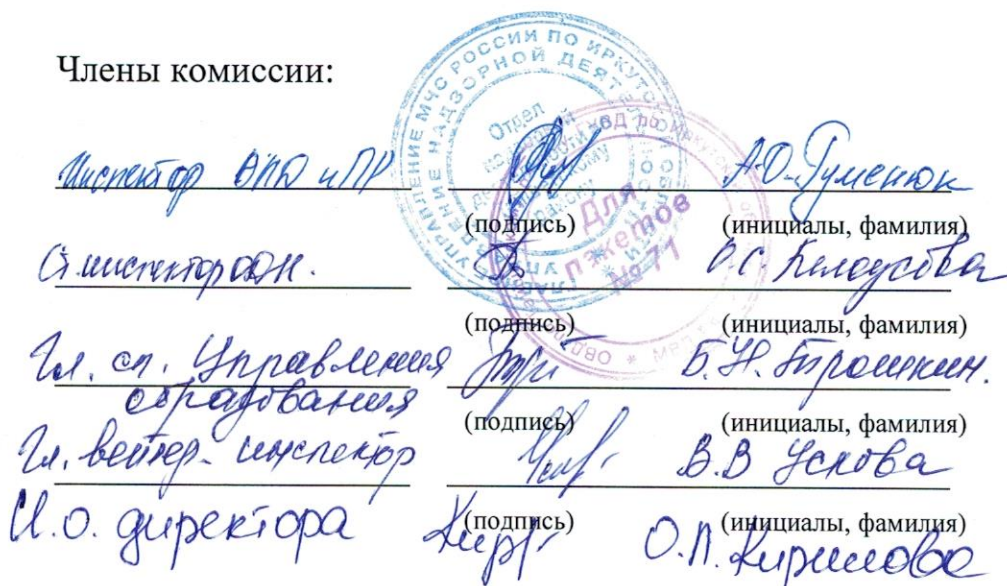 Члены комиссии:
Инспектор ОНД и ПР А.О. Гуменюк
(подпись) (инициалы, фамилия)
Ст. инспектор ОДН. О.С. Белоусова
(подпись) (инициалы, фамилия)
Гл. сп. Управления Б.Н. Трошкин.
образования
(подпись) (инициалы, фамилия)
Гл. ветер. инспектор В.В Ускова
(подпись) (инициалы, фамилия)
И.О. директора О.П. Кирилова
УПРАВЛЕНИЕ МЧС РОССИИ ПО ИРКУТСКОЙ
Отдел
Для
пакетов
№ 71